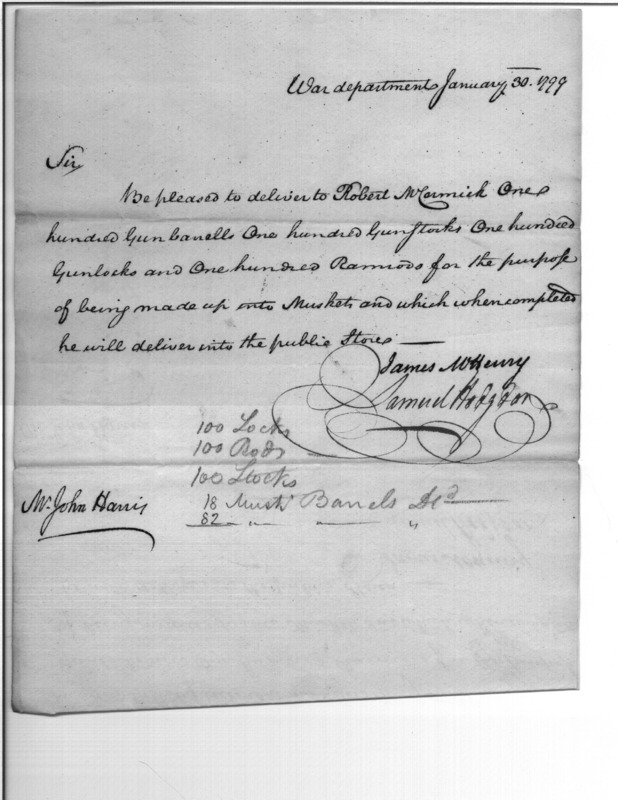 War department January 30. 1799
Sir,
Be pleased to deliver to Robert McCormick One
hundred Gunbarrells One hundred GunStocks One hundred
Gunlocks and One hundred Ramrods for the purpose
of being made up into Muskets and which when completed
he will deliver into the public Stores —
James McHenry
Samuel Hodgdon
100 Locks
100 Rods
100 Stocks
18 Muskt Barrels Dd
82 " "
Mr John Harris